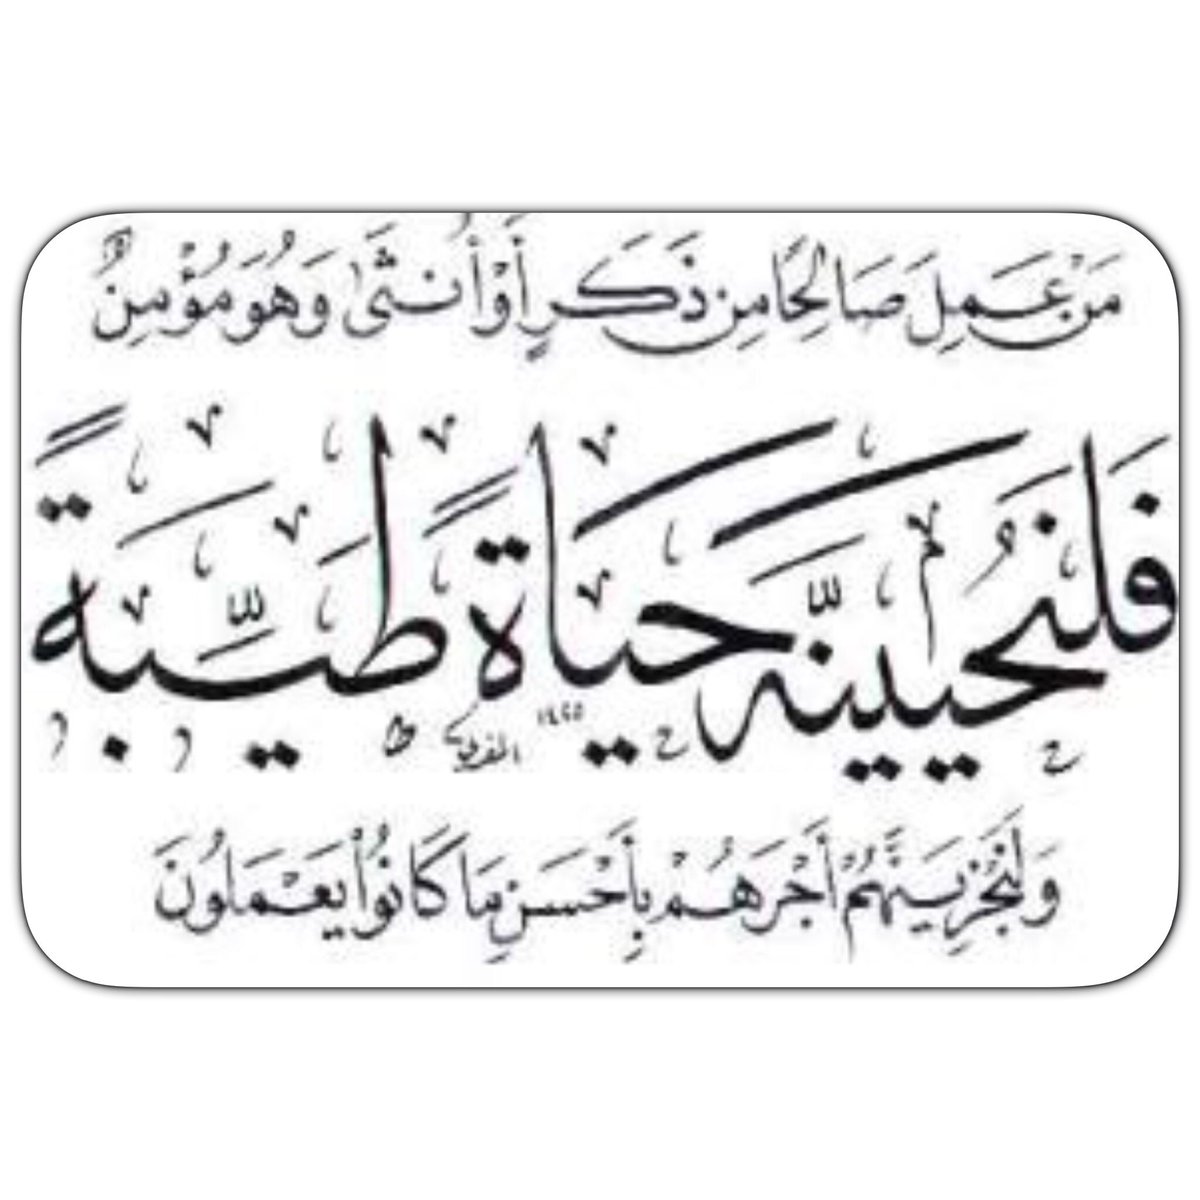 مَنْ عَمِلَ صَالِحًا مِن ذَكَرٍ أَوْ أُنثَىٰ وَهُوَ مُؤْمِنٌ
فَلَنُحْيِيَنَّهُ حَيَاةً طَيِّبَةً
١٤٢٥
وَلَنَجْزِيَنَّهُمْ أَجْرَهُمْ بِأَحْسَنِ مَا كَانُوا يَعْمَلُونَ